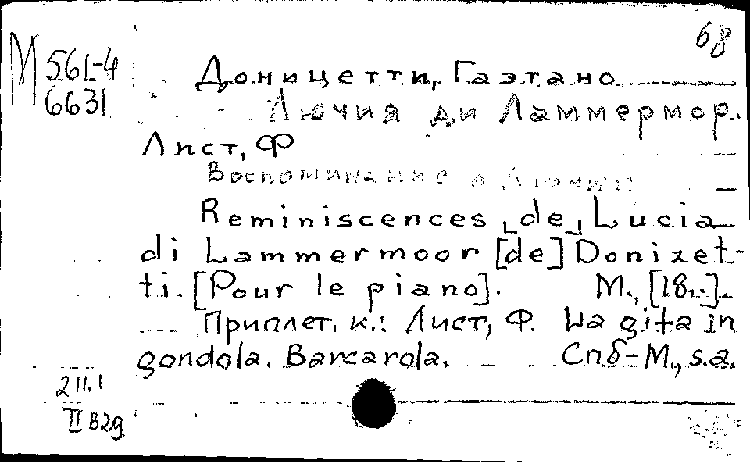 68
М 561-4
6631
Доницетти, Гаэтано
Лючия ди Ламмермор.
Лист, Ф
Воспоминание о Лючии
Reminiscences [de] Lucia
di Lammermoor [de] Donizet-
ti. [Pour le piano]. М., [18..].
Приплет. к.: Лист, Ф. La gita in
gondola. Barcarola. Спб-М., s.a.
211.1
II В29